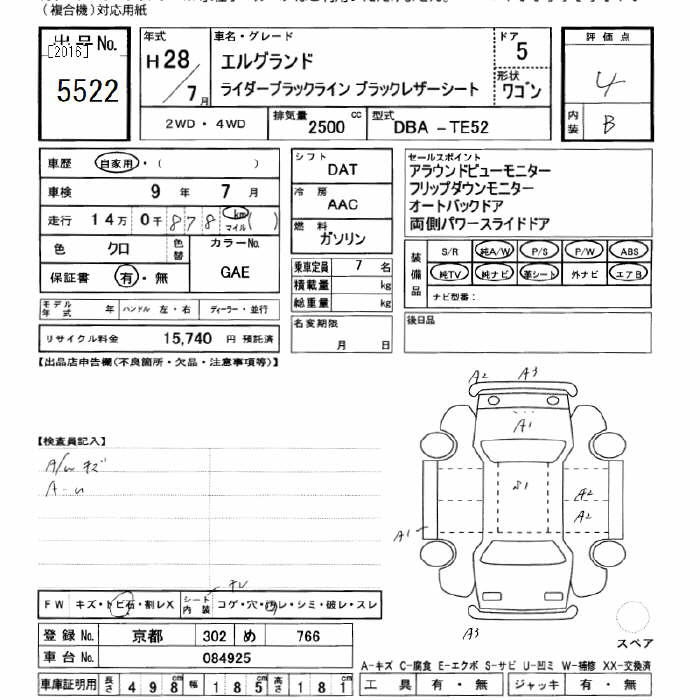 (複合機)対応用紙
出品No.
[2016]
5522
年式
H28/7月
車名・グレード
エルグランド
ライダーブラックライン ブラックレザーシート
ドア
5
形状
ワゴン
評価点
4
内装
B
2WD・4WD
排気量 2500 cc
型式 DBA -TE52
車歴 自家用・( )
車検 9年 7月
走行 14万 0千 878 km マイル ( )
色 クロ 色替
カラーNo.
GAE
保証書 有・無
モデル年式 年 ハンドル 左・右 ディーラー・並行
リサイクル料金 15,740 円 預託済
シフト
DAT
冷房
AAC
燃料
ガソリン
乗車定員 7 名
積載量 kg
総重量 kg
名変期限
月 日
セールスポイント
アラウンドビューモニター
フリップダウンモニター
オートバックドア
両側パワースライドドア
装備品
S/R 純A/W P/S P/W ABS
純TV 純ナビ 革シート 外ナビ エアB
ナビ型番:
後日品
【出品店申告欄(不良箇所・欠品・注意事項等)】
【検査員記入】
A/w キズ
A-u
A2 A3
A1
S1
A2
A2
A1
A3
スペア
FW キズ・トビ石・割レX
シート内装 コゲ・穴・汚レ・シミ・破レ・スレ
登録No. 京都 302 め 766
車台No. 084925
車庫証明用 長さ 498cm 幅 185cm 高さ 181cm
A-キズ C-腐食 E-エクボ S-サビ U-凹ミ W-補修 XX-交換済
工具 有・無 ジャッキ 有・無